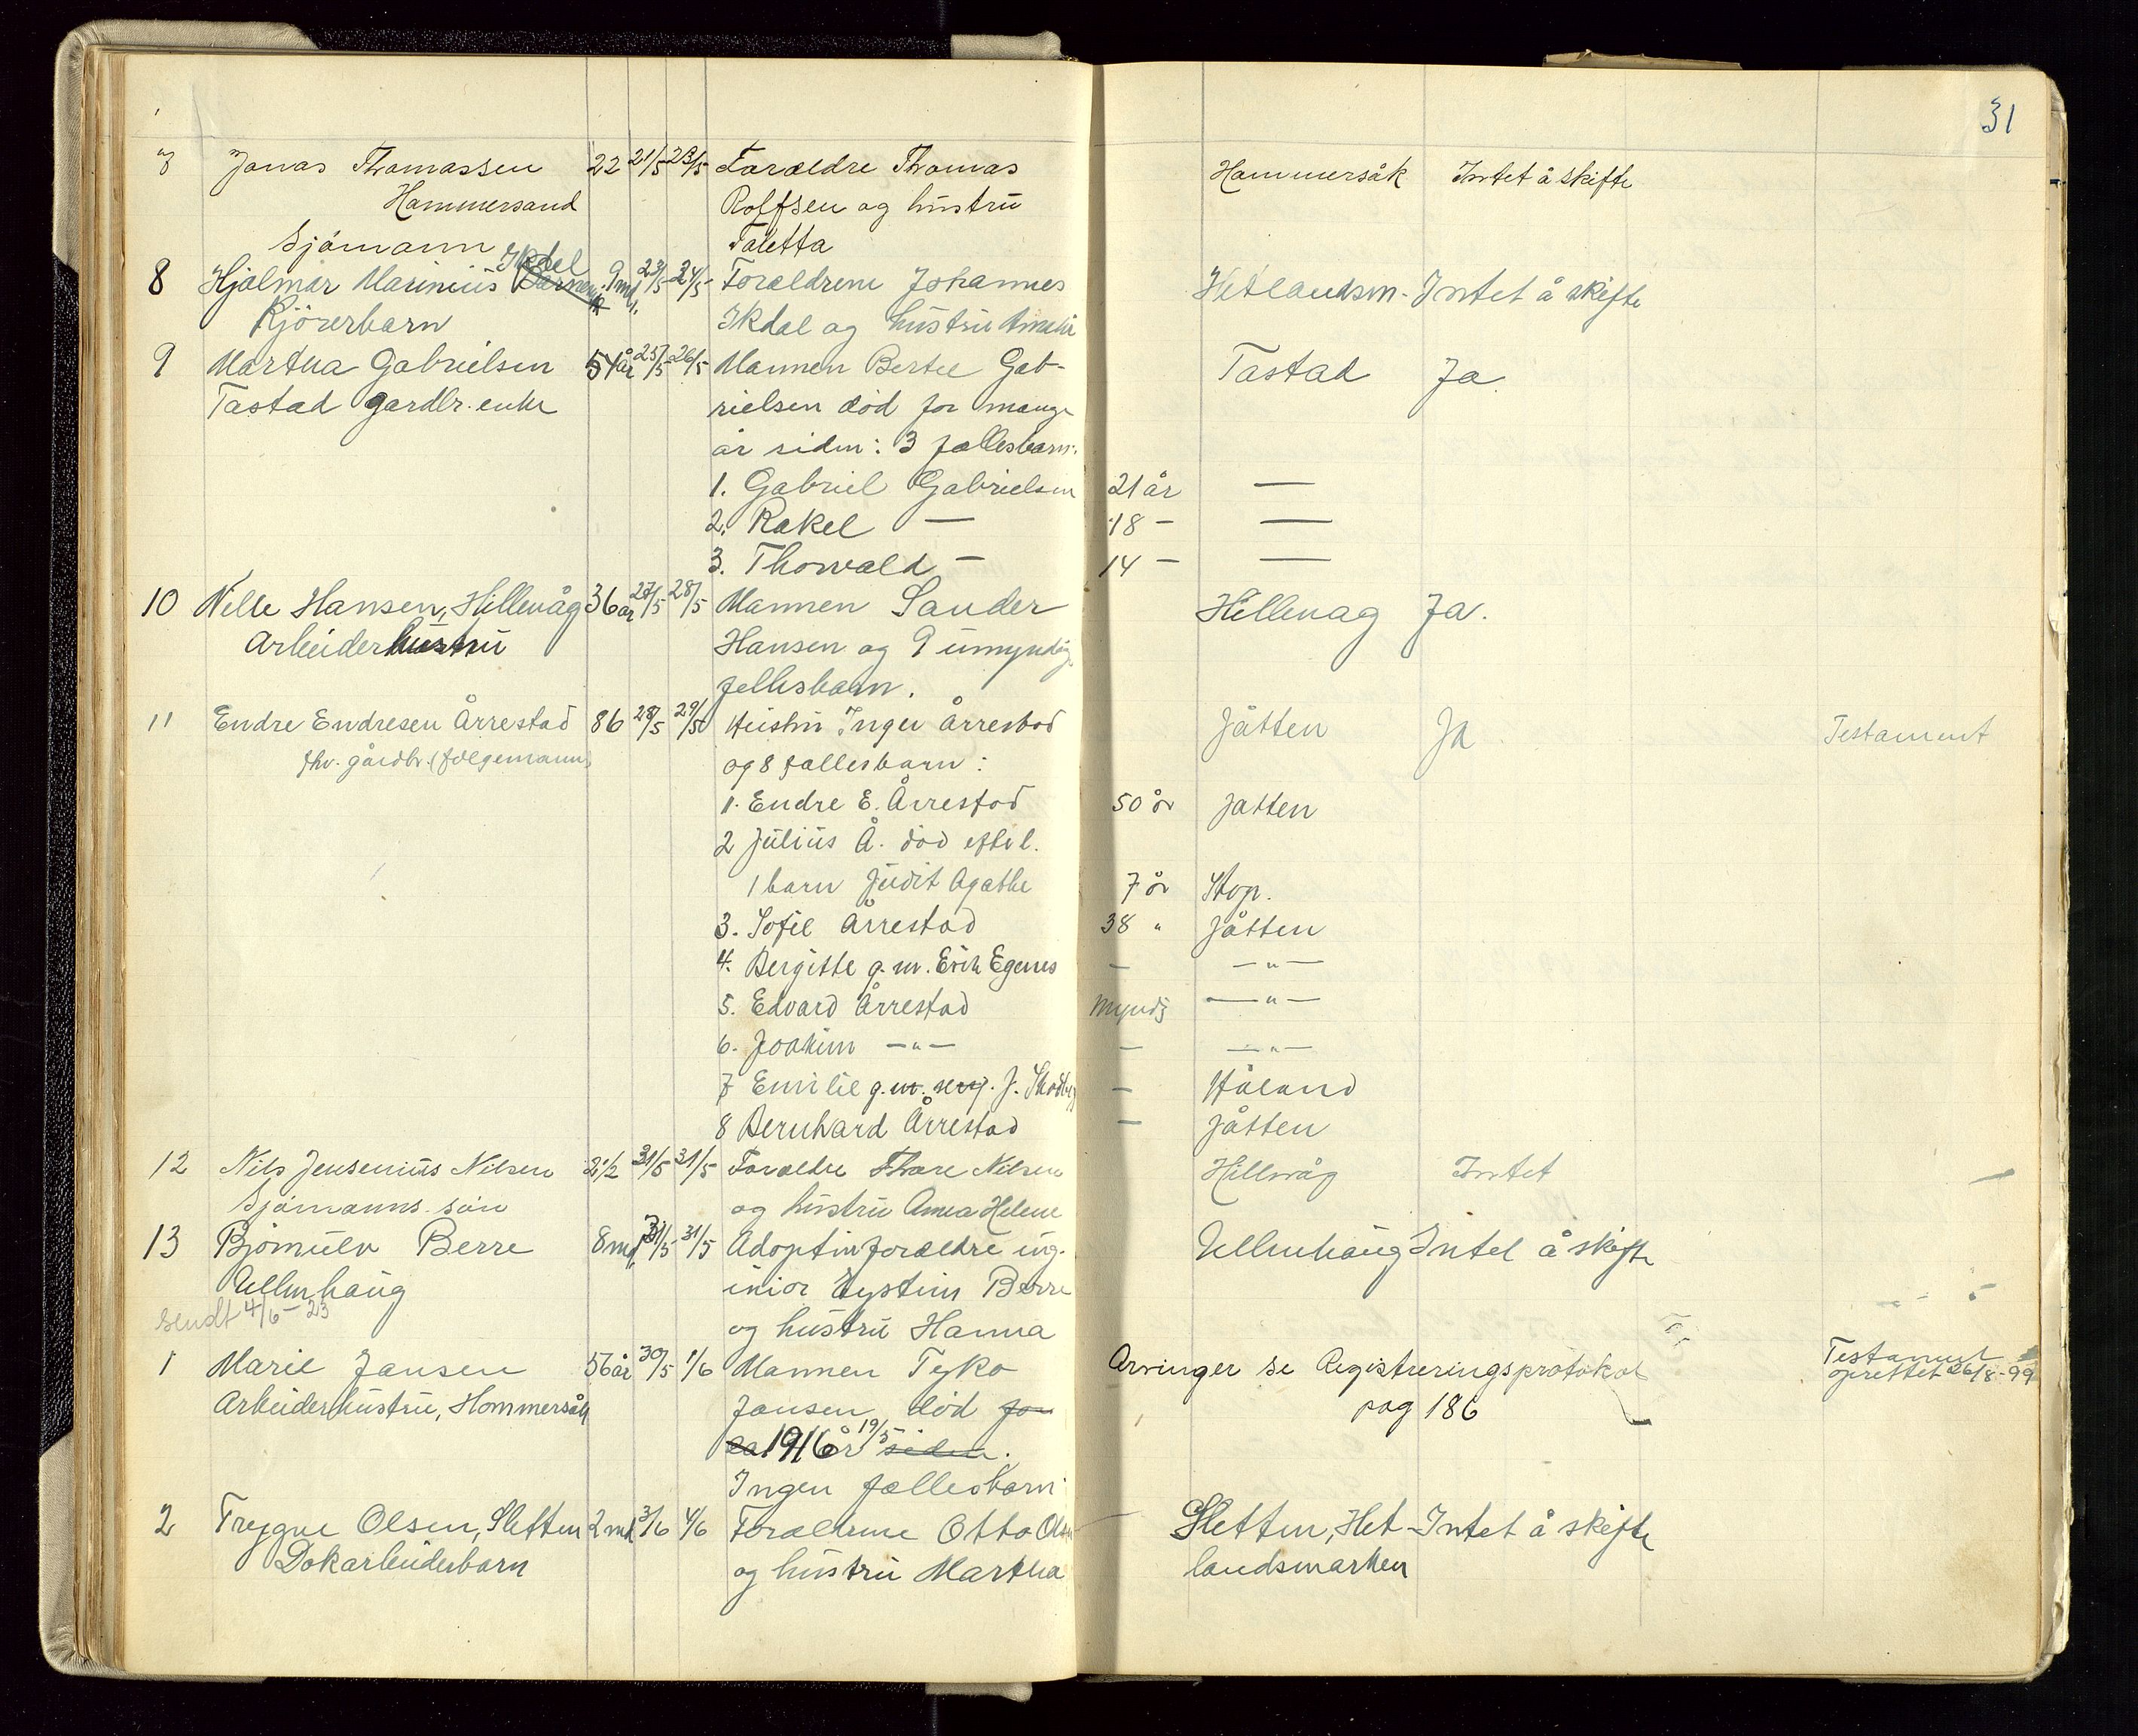 31
7 Jonas Thomassen 22 21/5 23/5 Forældre Thomas Hammersåk Intet å skifte
Hammersand Roffsen og hustru
Sjømann Taletta
Ikdal
8 Hjalmar Marinius 9 md. 23/5 24/5 Forældrene Johannes Hetlandsm. Intet å skifte
Kjörerbarn Ikdal og hustru
9 Martha Gabrielsen 54 år 25/5 26/5 Mannen Bertel Gab-
Tastad Ja
Tastad gardbr. enke rielsen död for mange
år siden: 3 fællesbarn:
1. Gabriel Gabrielsen 21 år —
2. Rakel — 18 — —
3. Thorvald — 14 — —
10 Nelle Hansen, Hillevåg 36 år 27/5 28/5 Mannen Sander Hillevag Ja.
Arbeiderhustru Hansen og 9 umyndig
fellesbarn.
11 Endre Endresen Årrestad 86 28/5 29/5 Hustru Inger Årrestad Jåtten Ja Testament
fhv. gårdbr. (følgemann) og 8 fællesbarn:
1. Endre E. Årrestad 50 år Jatten
2 Julius Å. död efterl.
1 barn Judit Agathe 7 år Stop.
3. Sofie Årrestad 38 " Jåtten
4. Bergitte g. m. Erik Egenes — — " —
5. Edvard Årrestad Myndig — " —
6. Joakim — " — — — " —
7 Emilie g. m. serg. J. — Håland
8 Bernhard Årrestad — Jåtten
12 Nils Jensenius Nilsen 2 1/2 31/5 31/5 Forældre Thore Nilsen Hillevåg Intet —
Sjømanns sön og hustru Anna Helene
13 Bjørnulv Berre 8 md. 31/5 31/5 Adoptivforældre ing- Ullenhaug Intet å skifte
Ullenhaug eniör Eystein Berre
sendt 4/6 - 23
og hustru Hanna
1 Marie Jansen 56 år 30/5 1/6 Mannen Tyko Arvinger se Registreringsprotokol Testament
oprettet 26/8-99
Arbeiderhustru, Hommersåk Jansen död for pag 186
ca 1916 år 19/5 siden.
Ingen fællesbarn
2 Trygve Olsen, Sletten 2 md 3/6 4/6 Forældrene Otto Olsen Sletten, Het- Intet å skifte
Dokarbeiderbarn og hustru Martha landsmarken